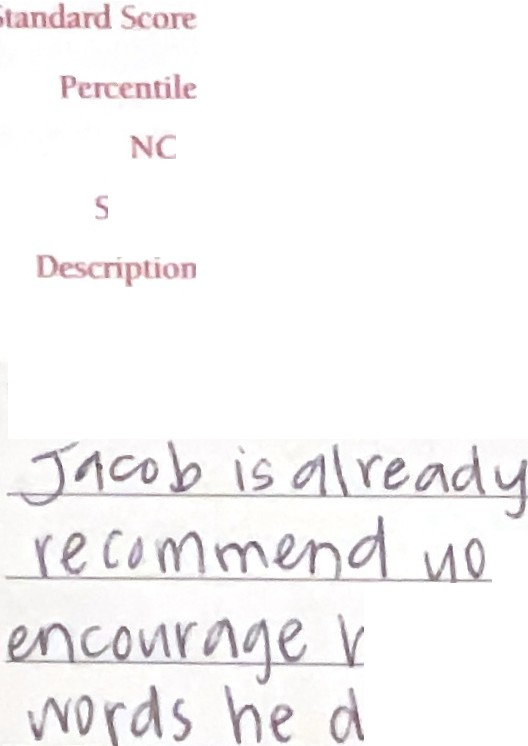 Standard Score
Percentile
NC
S
Description
Jacob is already
recommend yo
encourage
words he d